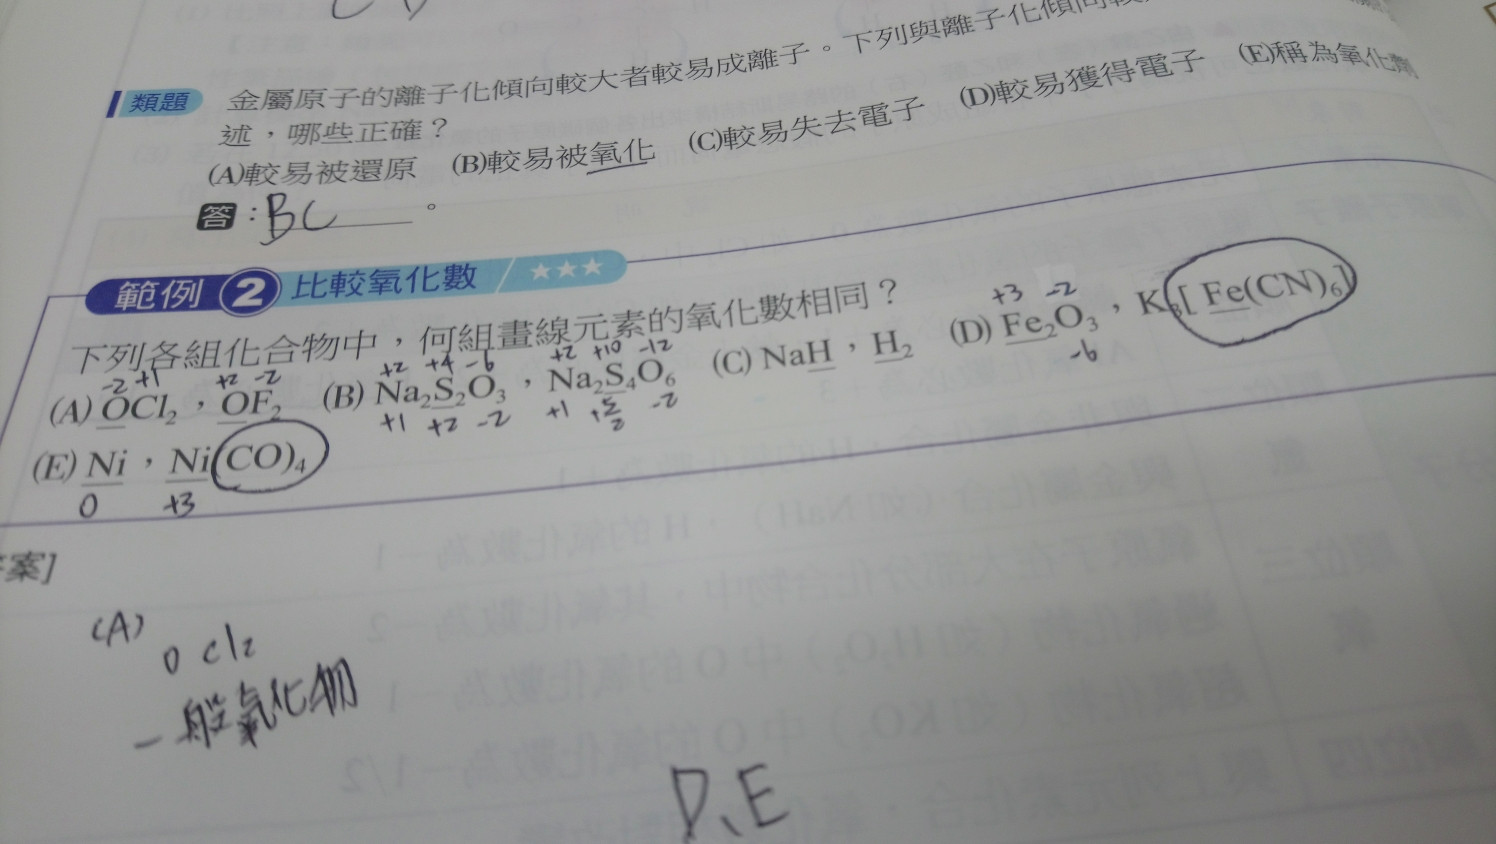 類題 金屬原子的離子化傾向較大者較易成離子。下列與離子化傾向較
述,哪些正確?
(A)較易被還原 (B)較易被氧化 (C)較易失去電子 (D)較易獲得電子 (E)稱為氧化劑
答:BC。
範例 2 比較氧化數 ★★★
下列各組化合物中,何組畫線元素的氧化數相同?
-2 +1 +2 -2 +2 +4 -6 +2 +10 -12 +3 -2
(A) OCl₂,OF₂ (B) Na₂S₂O₃,Na₂S₄O₆ (C) NaH,H₂ (D) Fe₂O₃,K₃[Fe(CN)₆]
+1 +2 -2 +1 +5/2 -2 -6
(E) Ni,Ni(CO)₄
0 +3
案]
(A)
OCl₂
一般氧化物
D、E